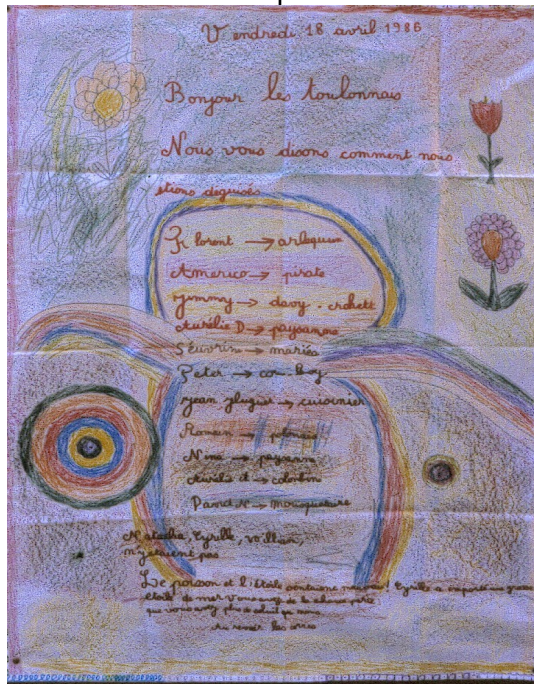 Vendredi 18 avril 1986
Bonjour les toulonnais
Nous vous disons comment nous
étions deguisés
Florent → arlequin
Americo → pirate
Jimmy → davy-crokett
Aurélie D → paysanne
Séverine → mariée
Peter → cow-boy
Jean → cuisinier
Romain →
Nina → paysanne
Aurélie →
David → mousquetaire
Natacha, Cyrille, William,
n'étaient pas
Le poisson et l'étoile nouveau! Cyrille a
étoile de mer vous avez de la chance parce
que vous avez plus de
au revoir les